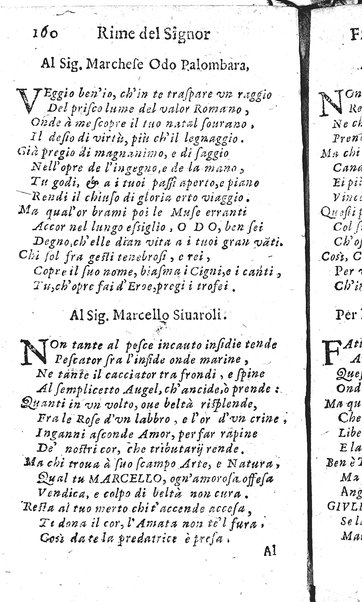 160 Rime del Signor
Al Sig. Marchese Odo Palombara,
VEggio ben'io, ch'in te traspar vn raggio
Del prisco lume del valor Romano,
Onde à me scopre il tuo natal sourano,
Il desio di virtù, più ch'il legnaggio.
Già pregio di magnanimo, e di saggio
Nell'opre de l'ingegno, e de la mano,
Tu godi, & a i tuoi passi aperto, e piano
Rendi il chiuso di gloria erto viaggio.
Ma qual'or brami poi le Muse erranti
Accor nel lungo essiglio, ODO, ben sei
Degno, ch'elle dian vita a i tuoi gran vāti.
Chi sol fra gesti tenebrosi, e rei,
Copre il suo nome, biasma i Cigni, e i canti,
Tu, ch'opre fai d'Eroe, pregi i trofei.
Al Sig. Marcello Siuaroli.
NOn tante al pesce incauto insidie tende
Pescator fra l'infide onde marine,
Ne tante il cacciator tra frondi, e spine
Al semplicetto Augel, ch'ancide, ò prende:
Quanti in vn volto, oue beltà risplende,
Fra le Rose d'un labbro, e l'or d'vn crine,
Inganni asconde Amor, per far rapine
De' nostri cor, che tributarij rende.
Ma chi troua à suo scampo Arte, e Natura,
Qual tu MARCELLO, ogn'amorosa offesa
Vendica, e colpo di beltà non cura.
Resta al tuo merto chi t'accende accesa,
Te dona il cor, l'Amata non te'l fura,
Così da te la predatrice è presa.
Al
N
Ne ch
Ma chi
Cana
Ei più
Vince
Questi p
Col s
Ch'o
Così, C
Per v
Ch'i
Per l
F
Ques
Ond
Ma qu
Ch'
Libe
E la
Ben è T
Ma
Ang
GIVLI
S'a
Ma